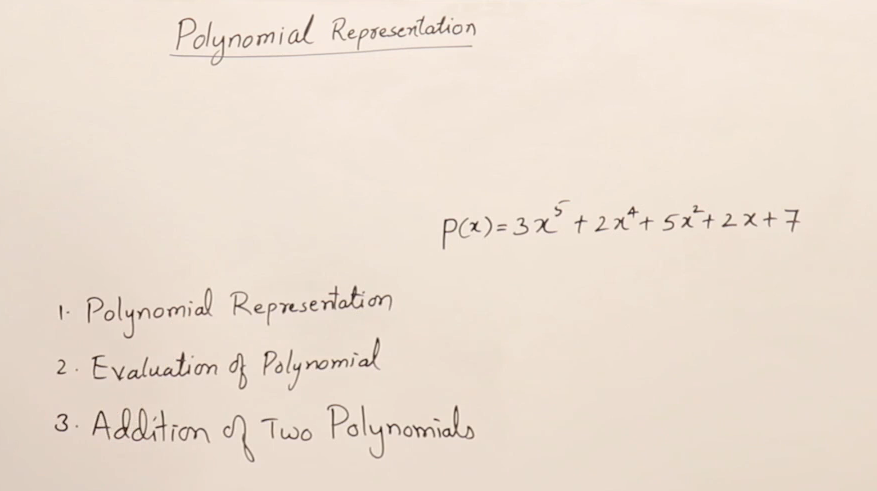 Polynomial Representation
P(x) = 3x⁵ + 2x⁴ + 5x² + 2x + 7
1. Polynomial Representation
2. Evaluation of Polynomial
3. Addition of Two Polynomials